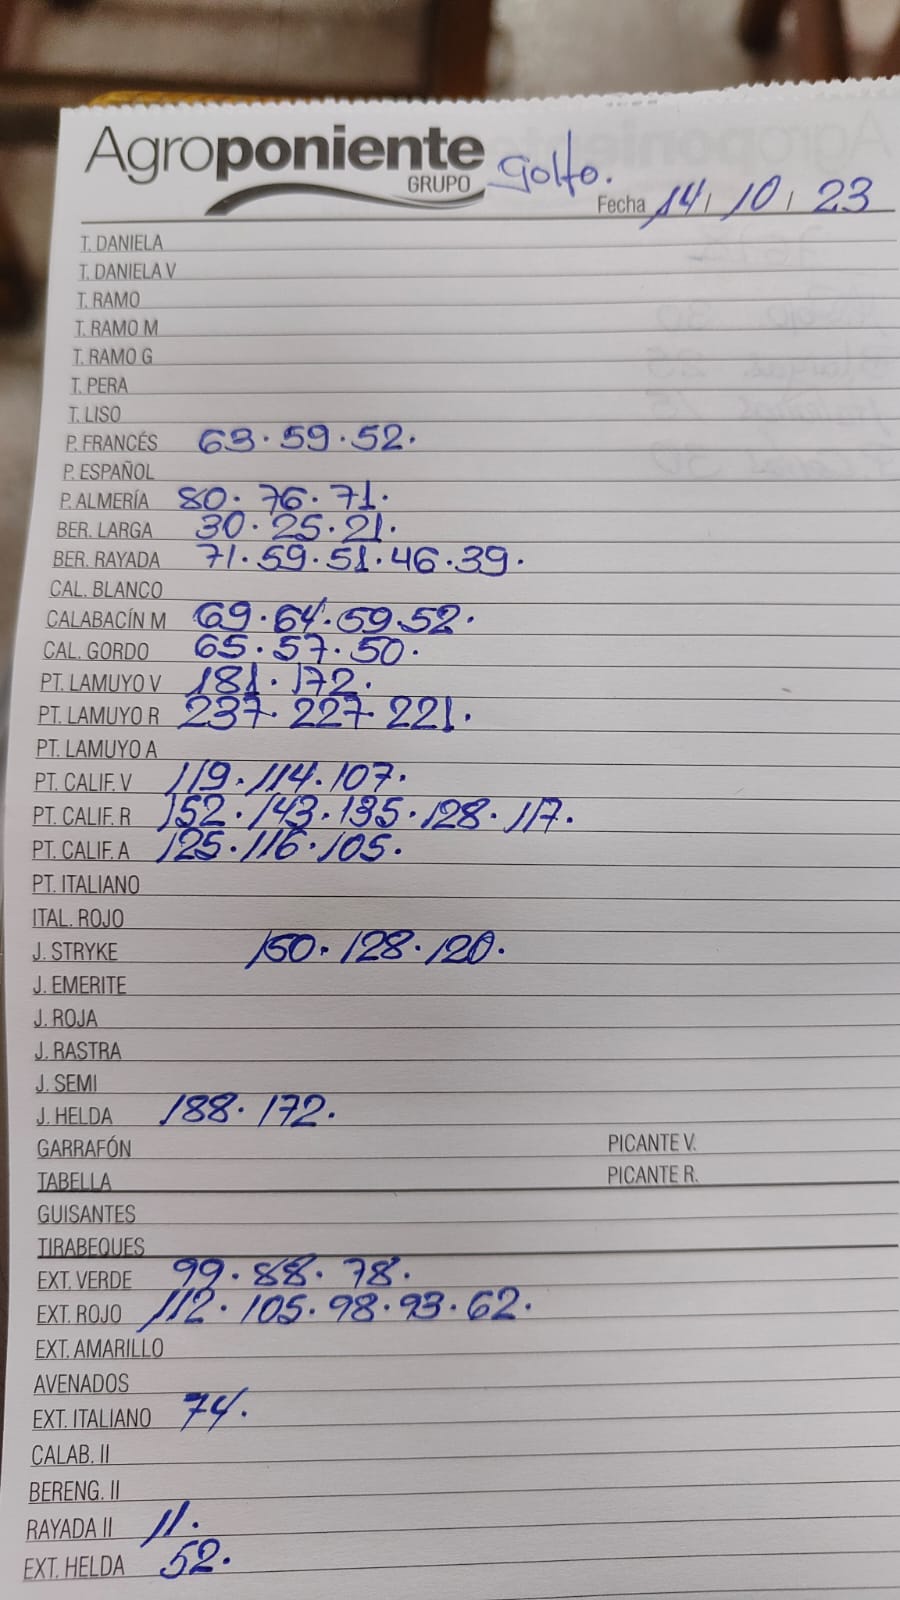 Agroponiente
GRUPO
Golfo.
Fecha 14 / 10 / 23
T. DANIELA
T. DANIELA V
T. RAMO
T. RAMO M
T. RAMO G
T. PERA
T. LISO
P. FRANCÉS 63 · 59 · 52.
P. ESPAÑOL
P. ALMERÍA 80 · 76 · 71.
BER. LARGA 30 · 25 · 21.
BER. RAYADA 71 · 59 · 51 · 46 · 39.
CAL. BLANCO
CALABACÍN M 69 · 64 · 59 · 52.
CAL. GORDO 65 · 57 · 50.
PT. LAMUYO V 181 · 172.
PT. LAMUYO R 237 · 227 · 221.
PT. LAMUYO A
PT. CALIF. V 119 · 114 · 107.
PT. CALIF. R 152 · 143 · 135 · 128 · 117.
PT. CALIF. A 125 · 116 · 105.
PT. ITALIANO
ITAL. ROJO
J. STRYKE 150 · 128 · 120.
J. EMERITE
J. ROJA
J. RASTRA
J. SEMI
J. HELDA 188 · 172.
GARRAFÓN PICANTE V.
TABELLA PICANTE R.
GUISANTES
TIRABEQUES
EXT. VERDE 99 · 88 · 78.
EXT. ROJO 112 · 105 · 98 · 93 · 62.
EXT. AMARILLO
AVENADOS
EXT. ITALIANO 74.
CALAB. II
BERENG. II
RAYADA II 11.
EXT. HELDA 52.